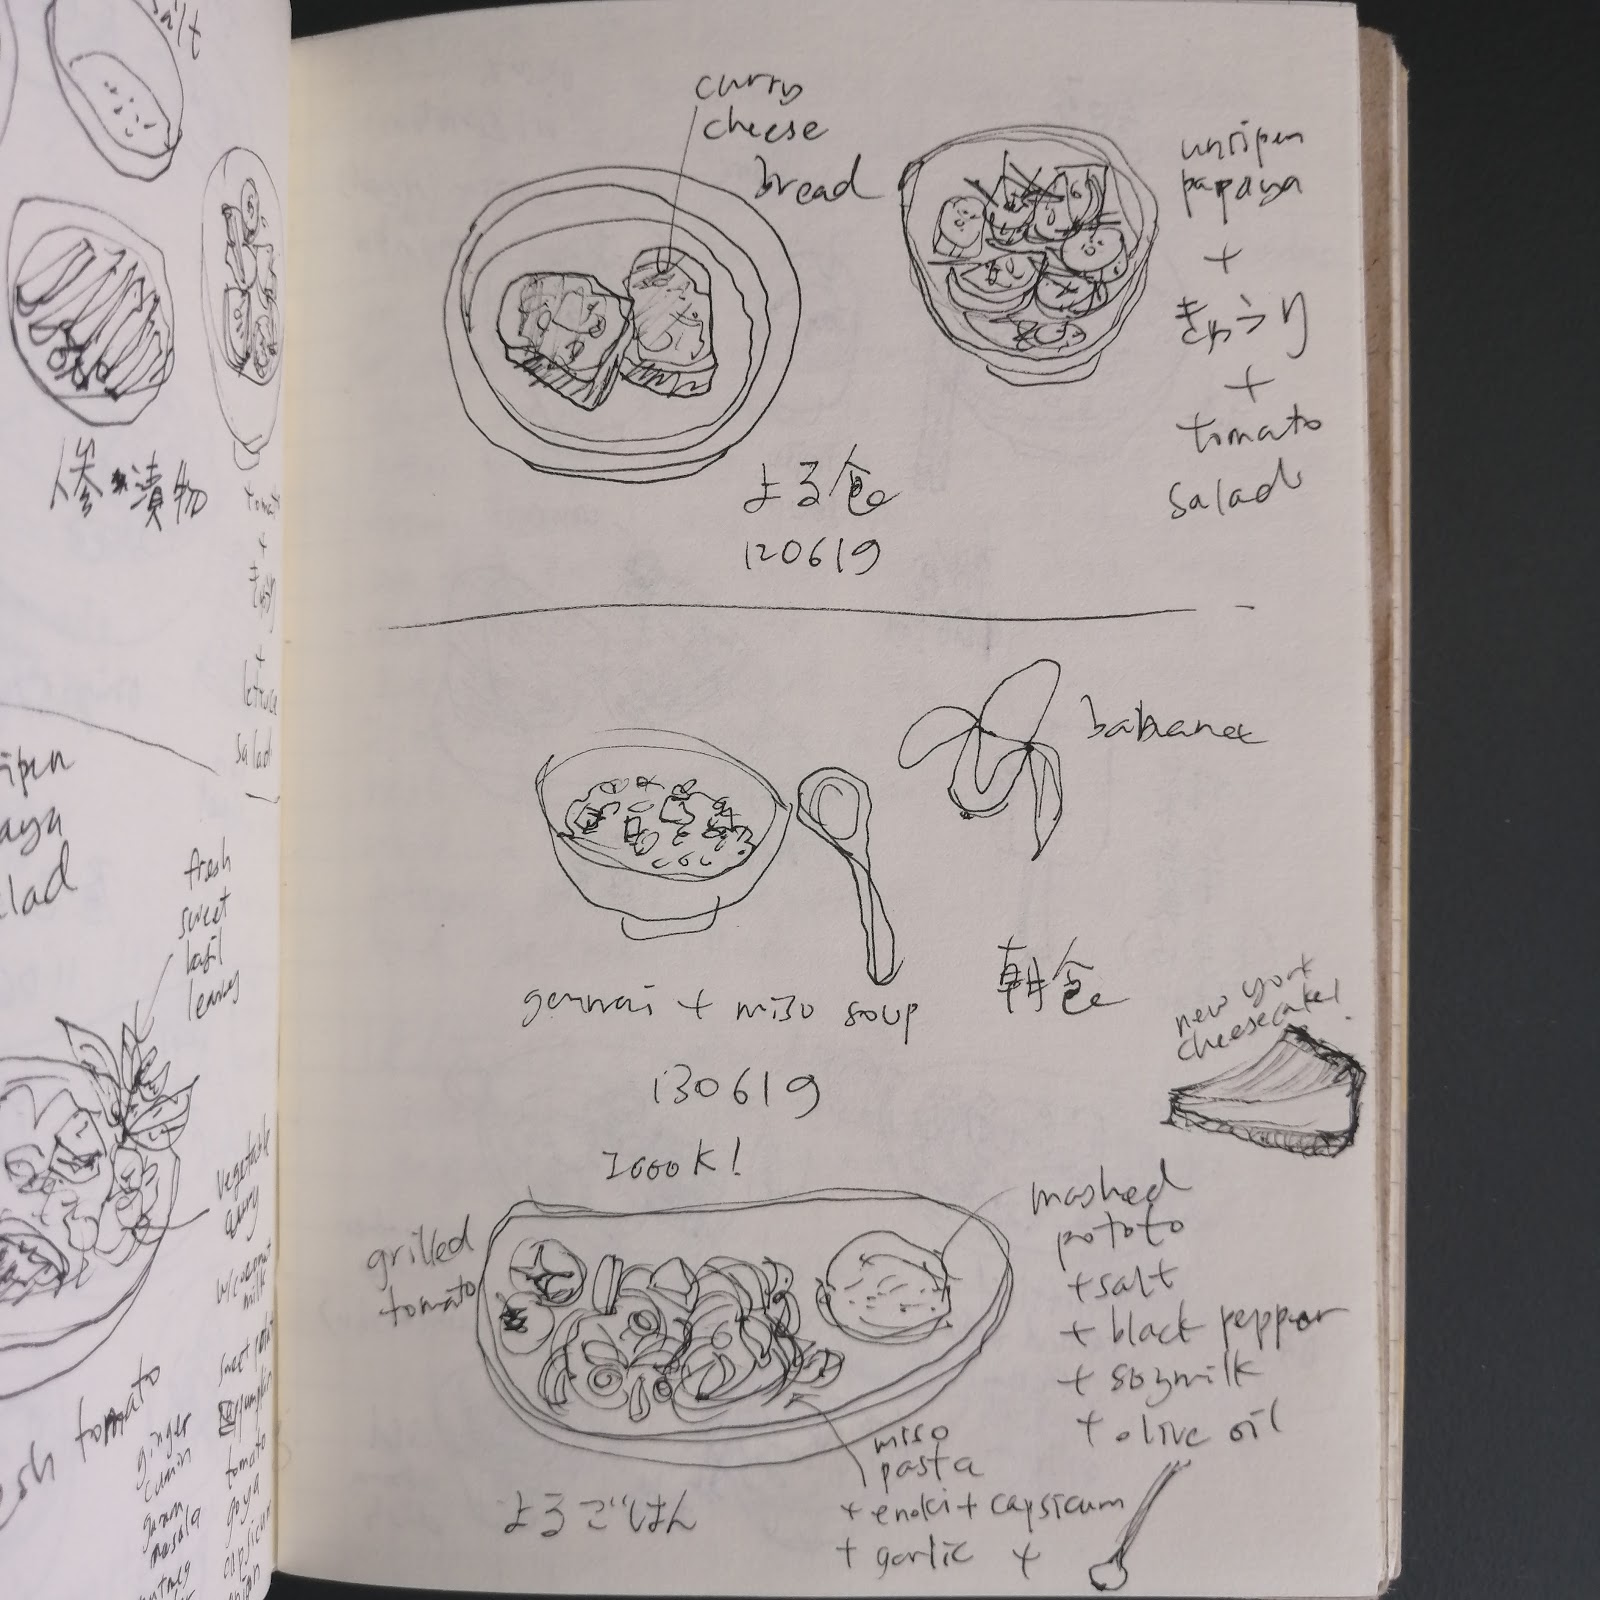 salt
漬物
+
+
lettuce
salad
fresh
sweet
basil
leaves
vegetable
curry
milk
fresh tomato
ginger
cumin
garam
masala
nutmeg
pumpkin
tomato
goya
capsicum
curry
cheese
bread
unripen
papaya
+
きゅうり
+
tomato
salad
よる食
120619
banana
genmai + miso soup
朝食
130619
new york
cheesecake!
I COOK!
grilled
tomato
mashed
pototo
+ salt
+ black pepper
+ soymilk
+ olive oil
miso
pasta
+ enoki + capsicum
+ garlic +
よるごはん